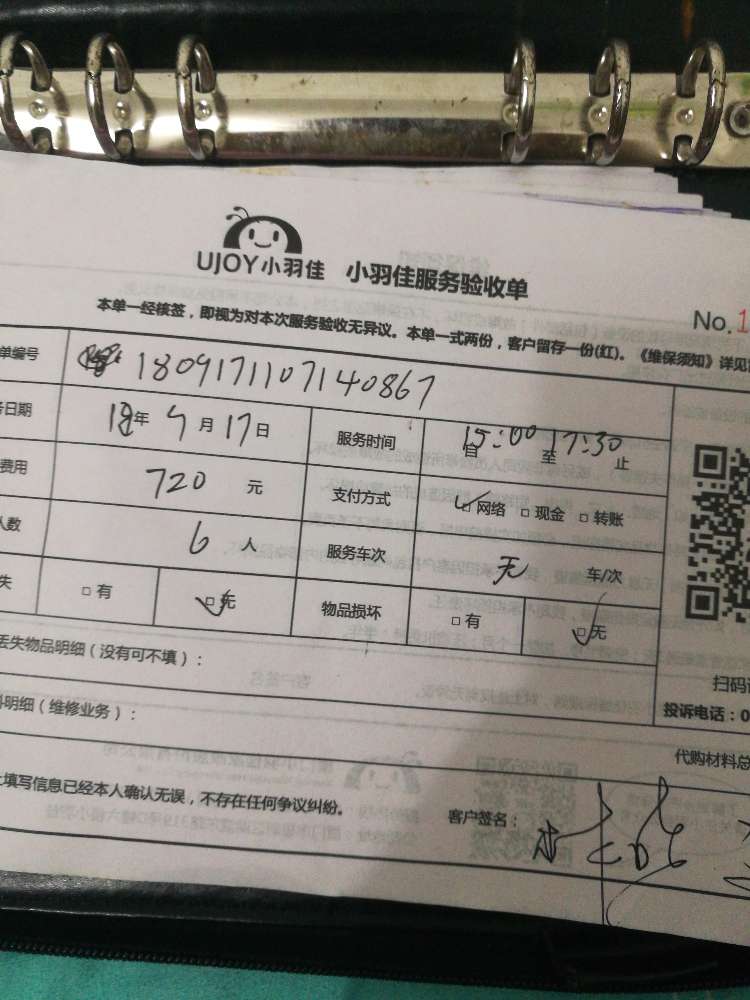 UJOY小羽佳 小羽佳服务验收单
No.1
本单一经核签，即视为对本次服务验收无异议。本单一式两份，客户留存一份(红)。《维保须知》详见
单编号 1809171107140867
日期 18年9月17日 服务时间 自15:00至17:30止
费用 720元 支付方式 □网络 □现金 □转账
人数 6人 服务车次 无 车/次
失 □有 □无 物品损坏 □有 □无
丢失物品明细（没有可不填）：
扫码
料明细（维修业务）：
投诉电话：0
代购材料总
上填写信息已经本人确认无误，不存在任何争议纠纷。 客户签名：